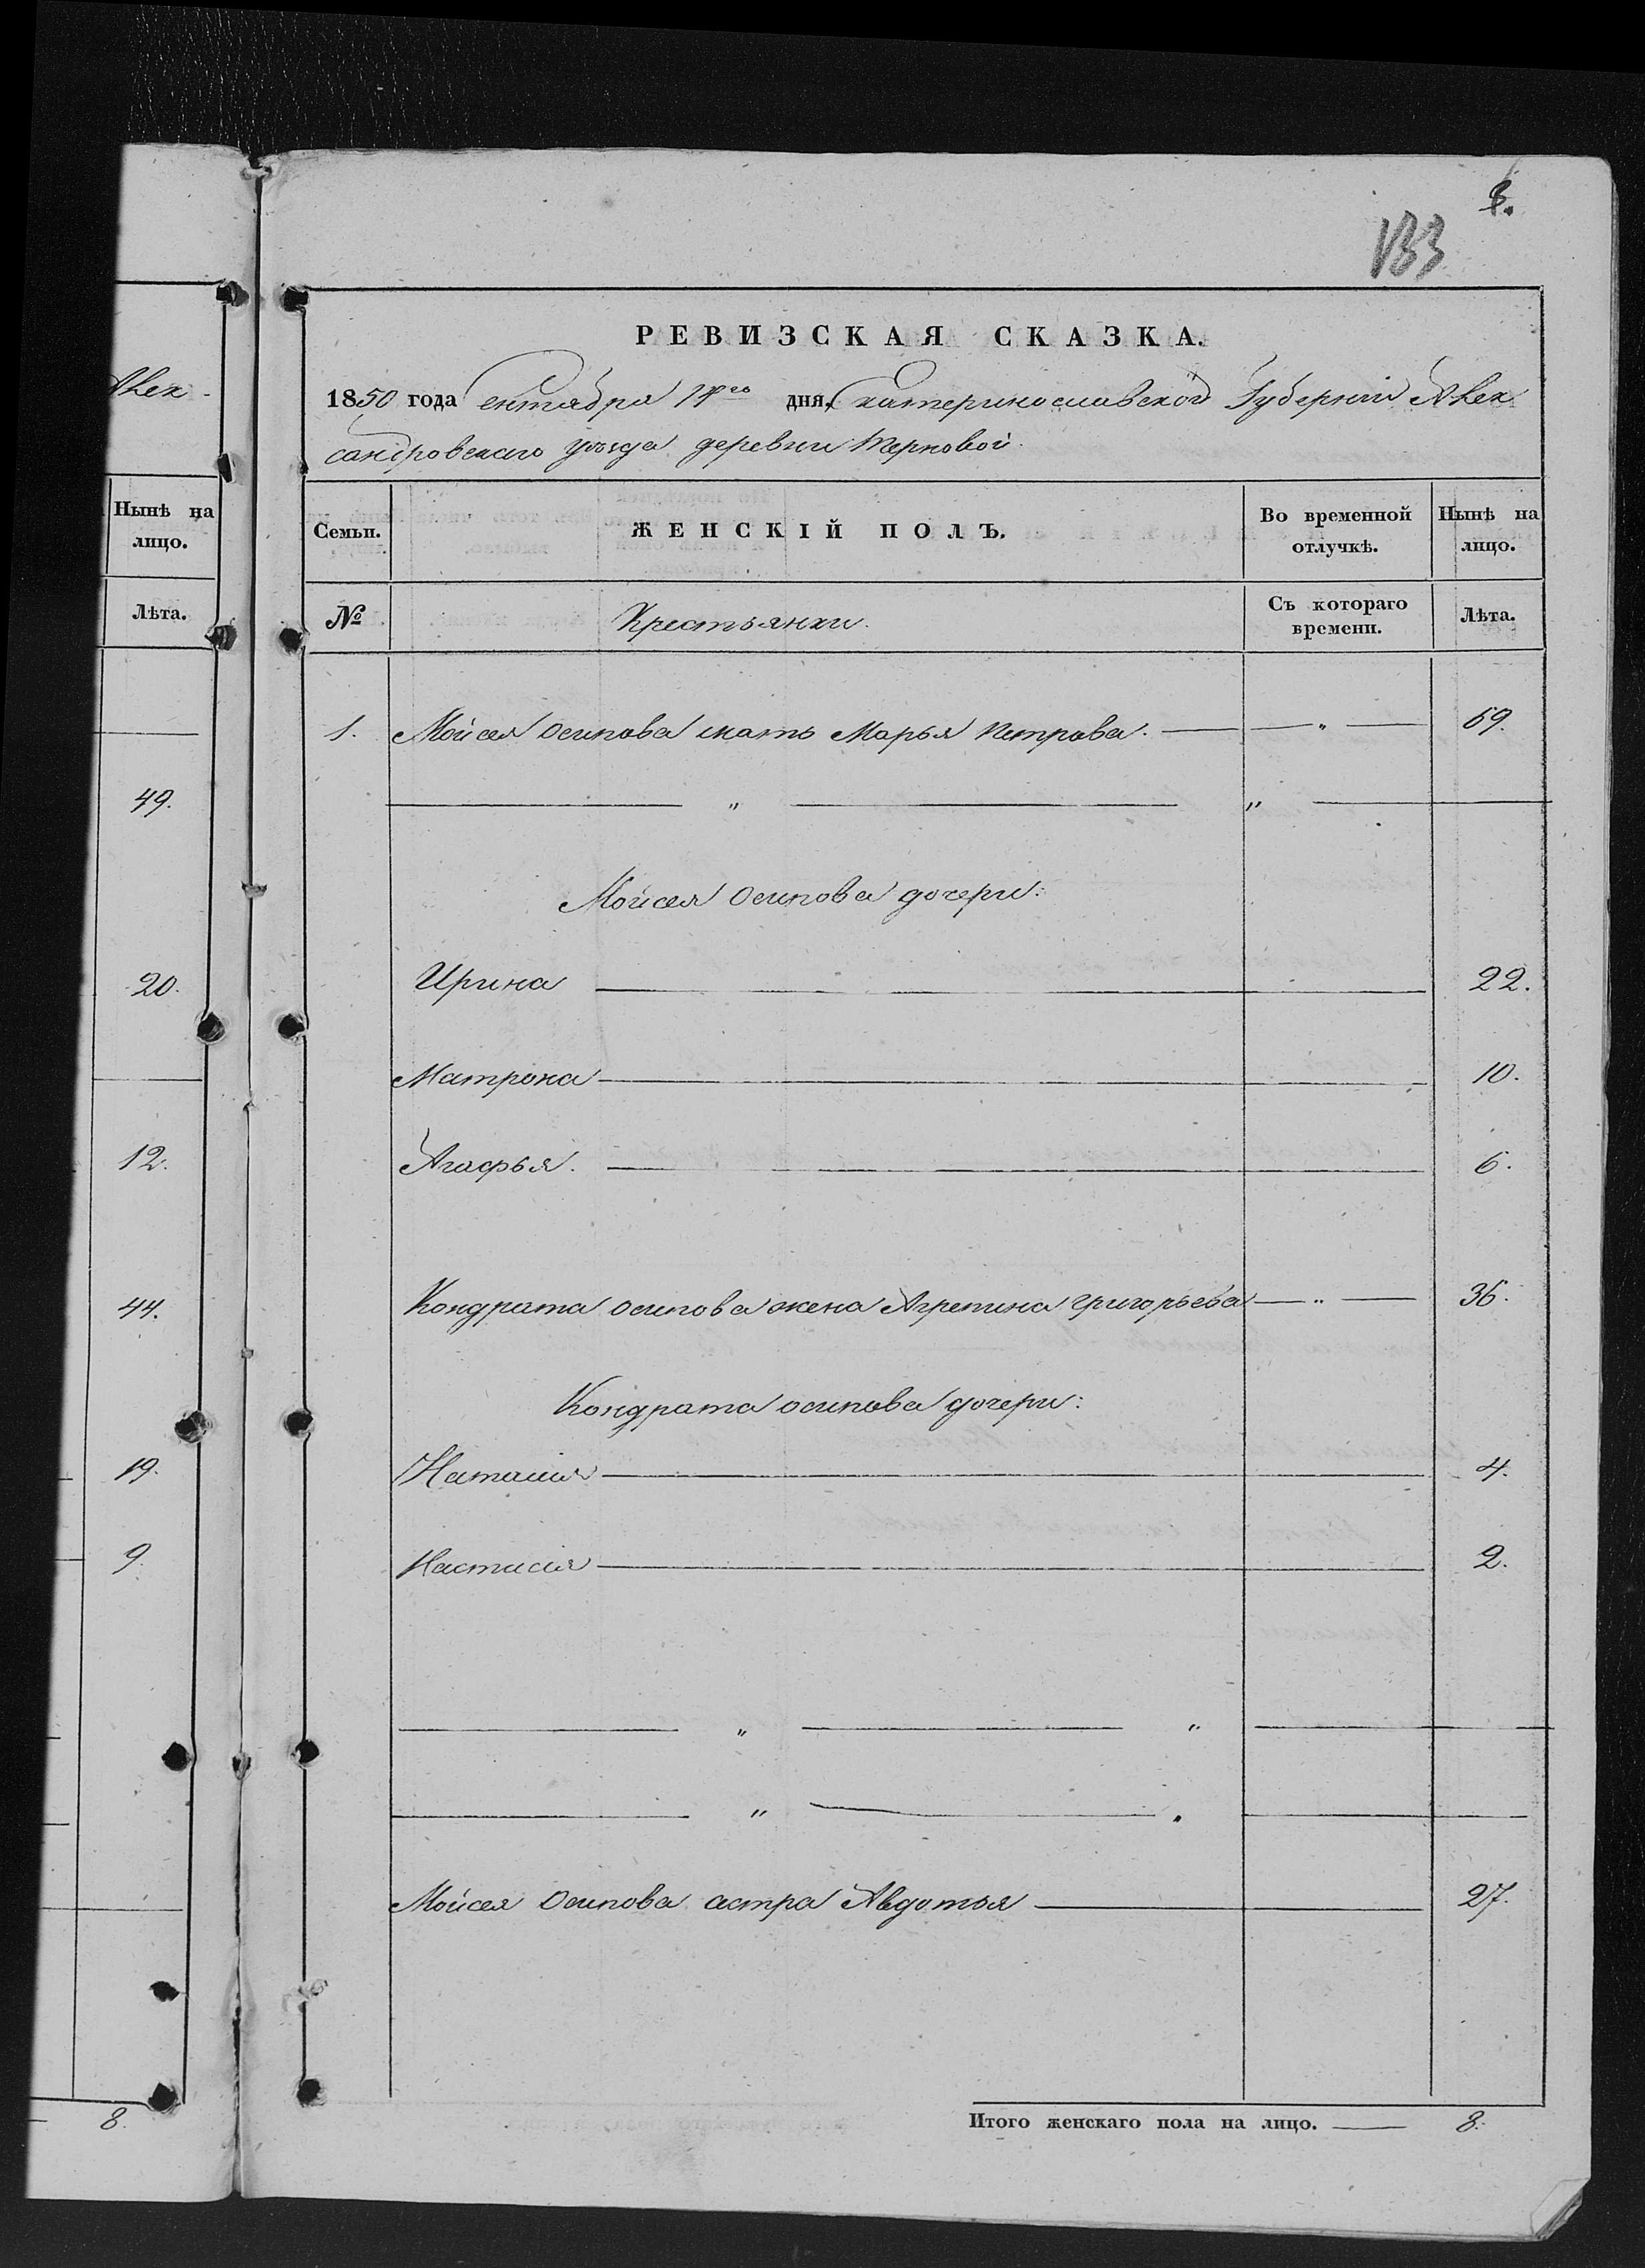 3.
133
РЕВИЗСКАЯ СКАЗКА.
1850 года Сентября 14го дня, Екатеринославской Губерніи Алек
сандровскаго уѣзда деревни Терновой.
Алек
Нынѣ на
лицо.
Лѣта.
49.
20.
12.
44.
19.
9.
8.
Семьи. ЖЕНСКІЙ ПОЛЪ. Во временной отлучкѣ. Нынѣ на лицо.
№ Крестьянки. Съ котораго времени. Лѣта.
1. Мойсея Осипова мать Марья Петрова. — „ — 69.
— „ — „ —
Мойсея Осипова дочери:
Ирина — 22.
Матрона — 10.
Агафья. — 6.
Кондрата Осипова жена Агрепина Григорьева — „ — 36.
Кондрата Осипова дочери:
Наталія — 4.
Настасія — 2.
— „ — „ —
— „ — „ —
Мойсея Осипова сестра Авдотья — 27.
Итого женскаго пола на лицо. — 8.